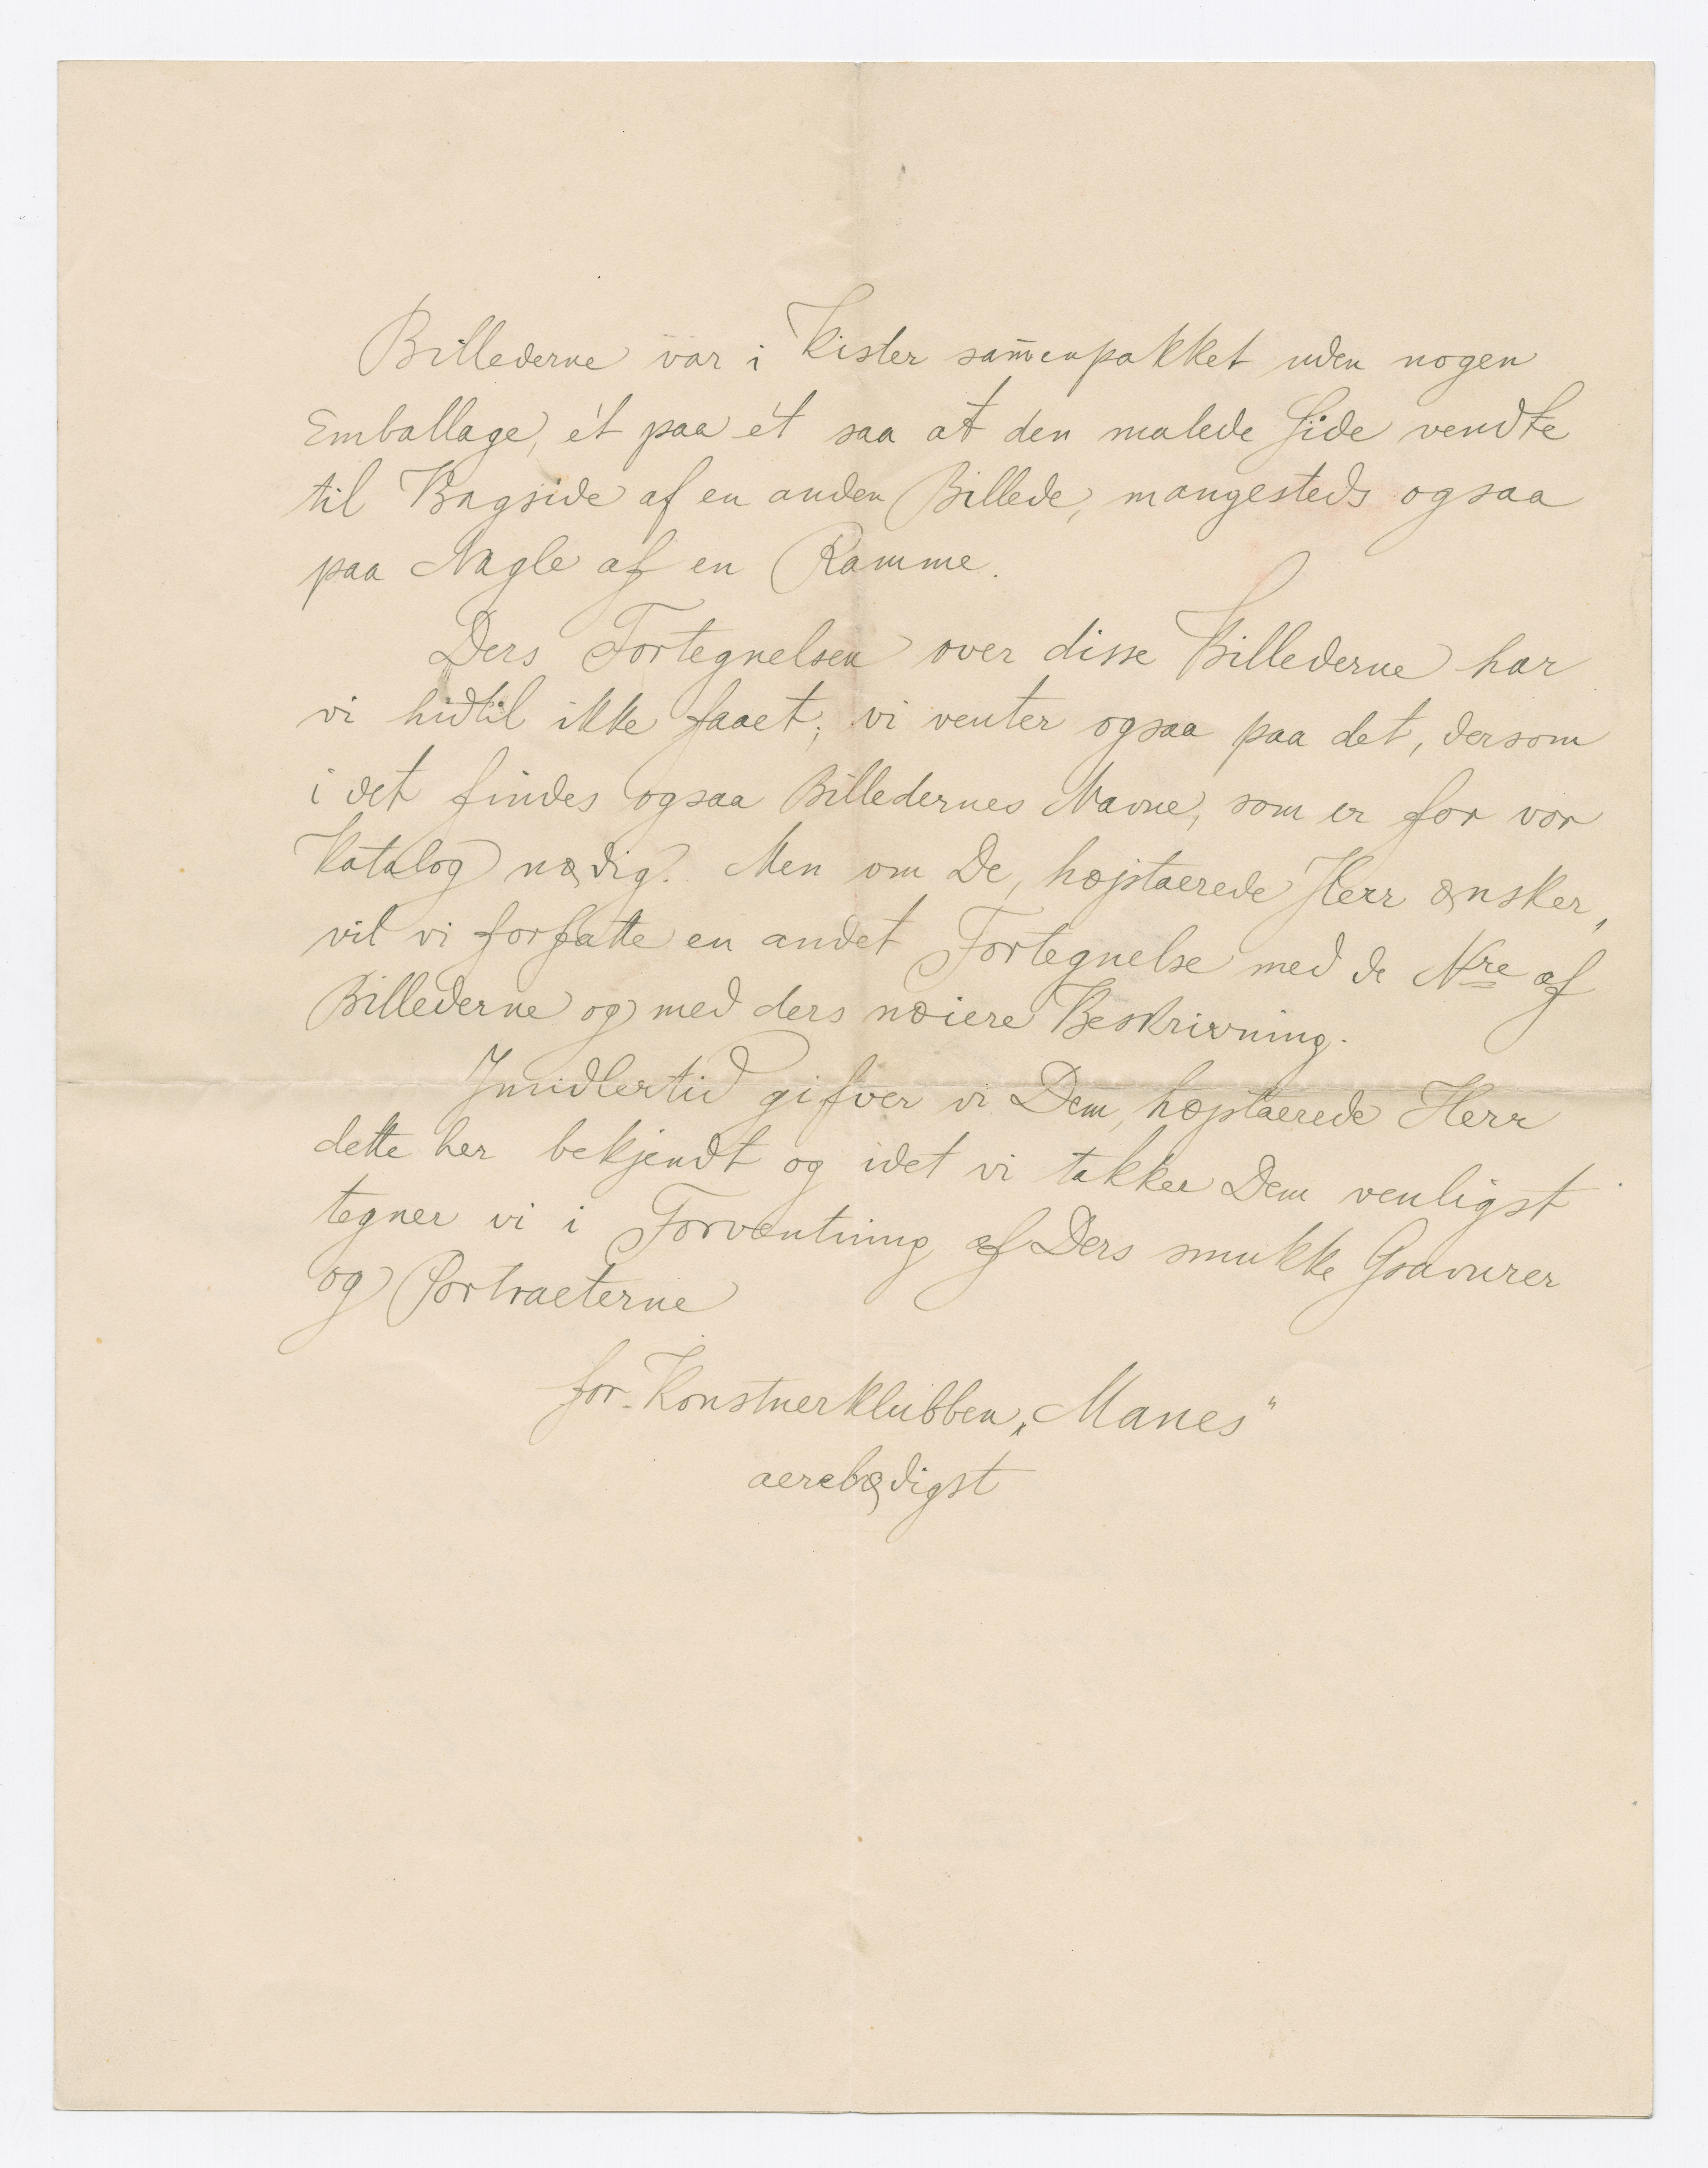 Billederne var i Kister sam̄enpakket uden nogen
Emballage, ét paa ét saa at den malede Side vendte
til Bagside af en anden Billede, mangesteds ogsaa
paa Nagle af en Ramme.
Ders Fortegnelsen over disse Billederne har
vi hidtil ikke faaet; vi venter ogsaa paa det, dersom
i det findes ogsaa Billedernes Navne, som er for vor
Katalog nødig. Men om De, højstaerede Herr ønsker,
vil vi forfatte en andet Fortegnelse med de Nre af
Billederne og med ders nøiere Beskrivning.
Imidlertid gifver vi Dem, højstaerede Herr
dette her bekjendt og idet vi takker Dem venligst
tegner vi i Forventning af Ders smukke Gravurer
og Portraeterne
for Konstnerklubben „Manes"
aerebødigst